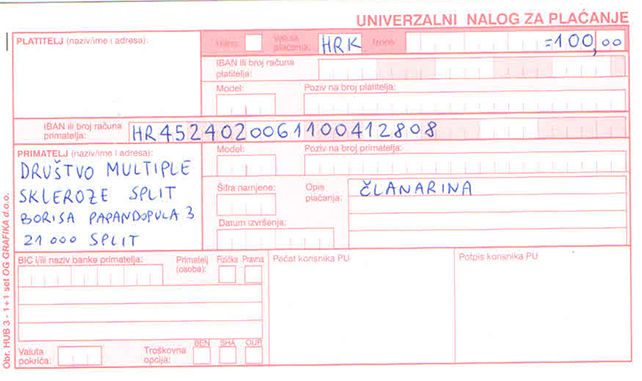 UNIVERZALNI NALOG ZA PLAĆANJE
PLATITELJ (naziv/ime i adresa):
Hitno: Valuta plaćanja: HRK Iznos: =100,00
IBAN ili broj računa platitelja:
Model: Poziv na broj platitelja:
IBAN ili broj računa primatelja: HR4524020061100412808
PRIMATELJ (naziv/ime i adresa):
DRUŠTVO MULTIPLE
SKLEROZE SPLIT
BORISA PAPANDOPULA 3
21000 SPLIT
Model: Poziv na broj primatelja:
Šifra namjene: Opis plaćanja: ČLANARINA
Datum izvršenja:
BIC i/ili naziv banke primatelja: Primatelj (osoba): Fizička Pravna
Pečat korisnika PU
Potpis korisnika PU
Valuta pokrića: Troškovna opcija: BEN SHA OUR
Obr. HUB 3 - 1+1 set OG GRAFIKA d.o.o.